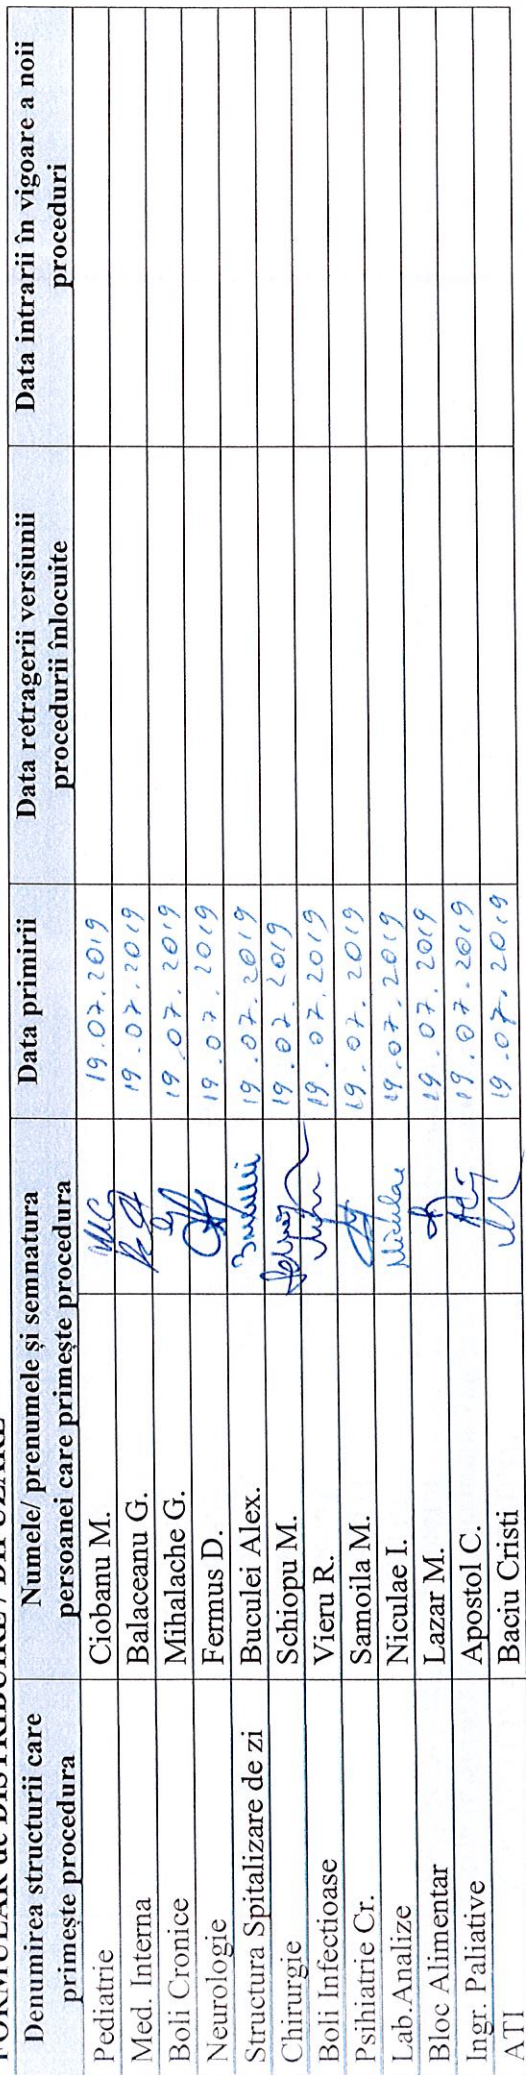 FORMULAR de DISTRIBUIRE / DIFUZARE
Denumirea structurii care primește procedura | Numele/ prenumele și semnatura persoanei care primește procedura | Data primirii | Data retragerii versiunii procedurii înlocuite | Data intrarii în vigoare a noii proceduri
Pediatrie | Ciobanu M. | 19.07.2019
Med. Interna | Balaceanu G. | 19.07.2019
Boli Cronice | Mihalache G. | 19.07.2019
Neurologie | Fermus D. | 19.07.2019
Structura Spitalizare de zi | Buculei Alex. | 19.07.2019
Chirurgie | Schiopu M. | 19.07.2019
Boli Infectioase | Vieru R. | 19.07.2019
Psihiatrie Cr. | Samoila M. | 19.07.2019
Lab.Analize | Niculae I. Niculae | 19.07.2019
Bloc Alimentar | Lazar M. | 19.07.2019
Ingr. Paliative | Apostol C. | 19.07.2019
ATI | Baciu Cristi | 19.07.2019